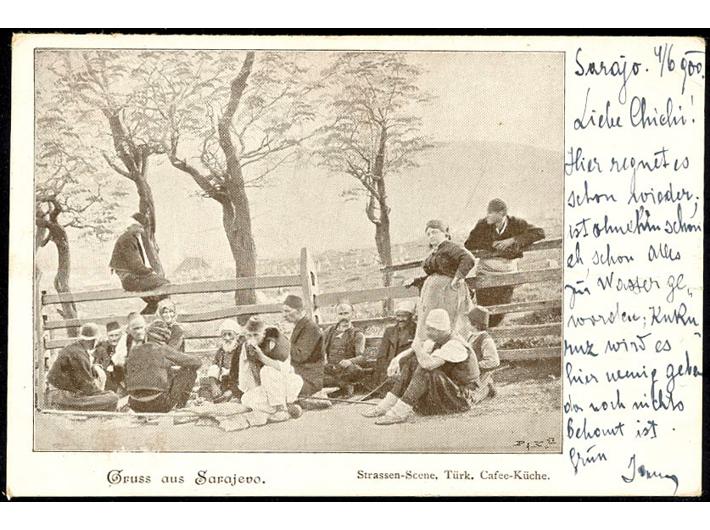 Sarajo. 4/6 900.
Liebe Chichi!
Hier regnet es
schon wieder,
ist ohnehin schon
eh schon Alles
zu Wasser ge„
worden, Kuku
ruz wird es
hier wenig geben
da noch nichts
behaut ist.
Gruss aus Sarajevo.
Strassen-Scene, Türk. Cafee-Küche.